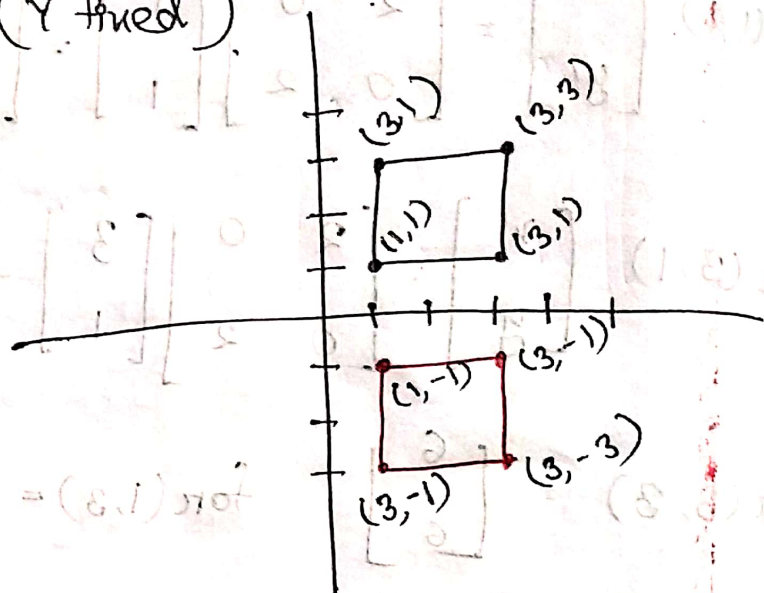 (Y fixed)
(3,1) (3,3)
(1,1) (3,1)
(1,-1) (3,-1)
(3,-1) (3,-3)